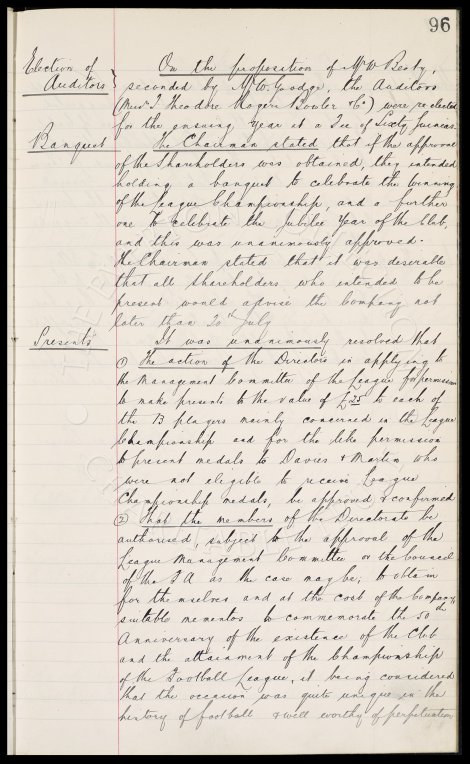 96
Election of On the proposition of Mr W Beaty,
Auditors } seconded by Mr W. Godge, the Auditors
(Messrs J. Theodore Rogers Bowler & Co) were re elected
for the ensuing year at a Fee of Sixty Guineas.
Banquet The Chairman stated that if the approval
of the Shareholders was obtained, they intended
holding a banquet to celebrate the winning
of the League Championship, and a further
one to celebrate the Jubilee Year of the Club,
and this was unanimously approved.
The Chairman stated that it was desirable
that all Shareholders who intended to be
present would advise the Company not
later than 20th July
Presents It was unanimously resolved that
① The action of the Directors in applying to
the Management Committee of the League for permission
to make presents to the value of £25 to each of
the 13 players mainly concerned in the League
Championship and for the like permission
to present medals to Davies & Martin, who
were not eligible to receive League
Championship medals, be approved & confirmed
② That the members of the Directorate be
authorised, subject to the approval of the
League Management Committee or the Council
of the F A as the case may be, to obtain
for themselves and at the cost of the Company,
suitable mementos to commemorate the 50th
Anniversary of the existence of the Club
and the attainment of the Championship
of the Football League, it being considered
that the occasion was quite unique in the
history of football & well worthy of perpetuation